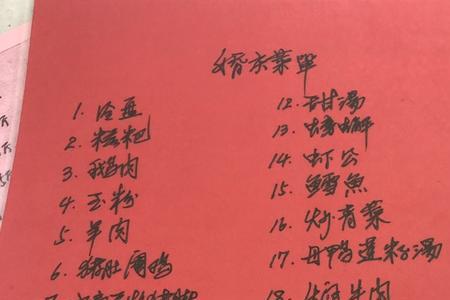 婚宴菜單
1. 冷盘
2. 糍粑
3. 鹅肉
4. 玉粉
5. 羊肉
6. 猪肚
7.
12. 甜汤
13. 螃蠏
14. 虾公
15. 魚
16. 炒青菜
17. 鸭莲籽汤
18. 牛肉